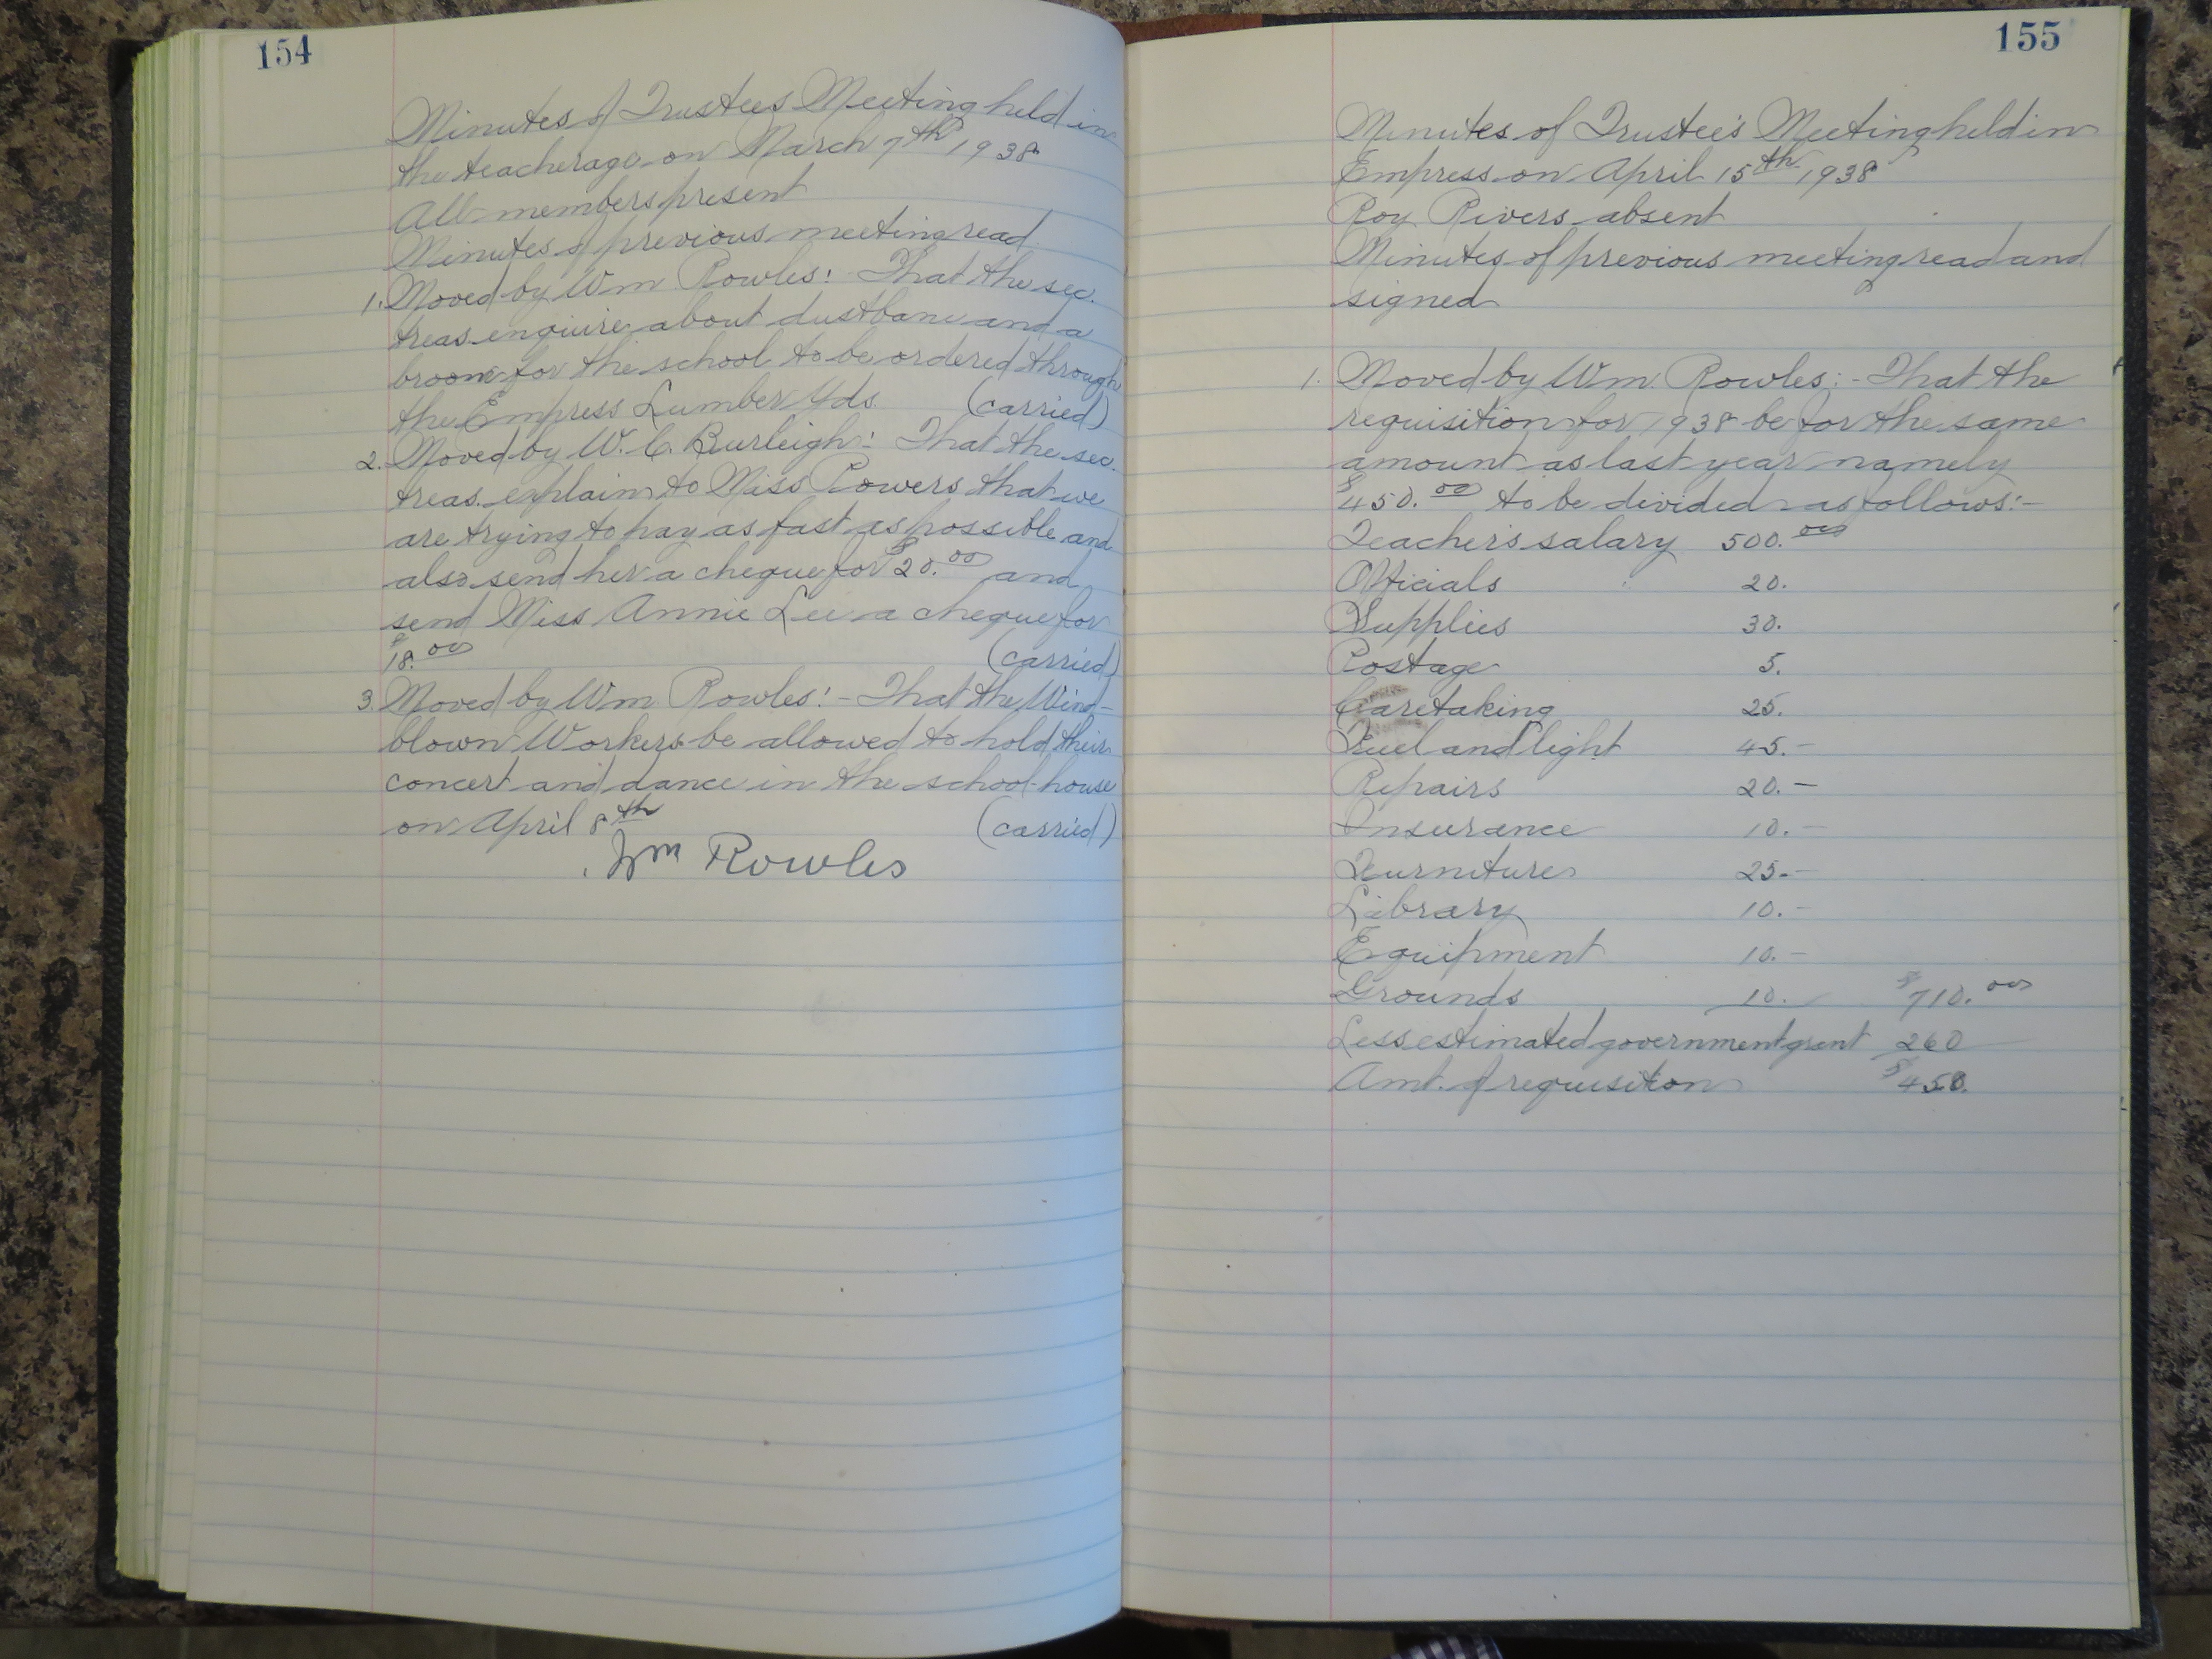 154
Minutes of Trustees Meeting held in
the teacherage on March 7th 1938
All members present
Minutes of previous meeting read.
1. Moved by Wm Rowles: That the sec.
treas. enquire about dustbane and a
broom for the school to be ordered through
the Empress Lumber Yds. (carried)
2. Moved by W. C. Burleigh: That the sec.
treas. explain to Miss Powers that we
are trying to pay as fast as possible and
also send her a cheque for $20.00 and
send Miss Annie Lee a cheque for
$18.00 (carried)
3. Moved by Wm. Rowles:- That the Wind-
blown Workers be allowed to hold their
concert and dance in the school-house
on April 8th (carried)
Wm Rowles
155
Minutes of Trustee's Meeting held in
Empress on April 15th 1938
Roy Rivers absent
Minutes of previous meeting read and
signed
1. Moved by Wm. Rowles:- That the
requisition for 1938 be for the same
amount as last year namely
$450.00 to be divided as follows:-
Teacher's salary 500.00
Officials 20.
Supplies 30.
Postage 5.
Caretaking 25.
Fuel and light 45.-
Repairs 20.-
Insurance 10.-
Furniture 25.-
Library 10.-
Equipment 10.-
Grounds 10. $710.00
Less estimated government grant 260
Amt. of requisition $450.